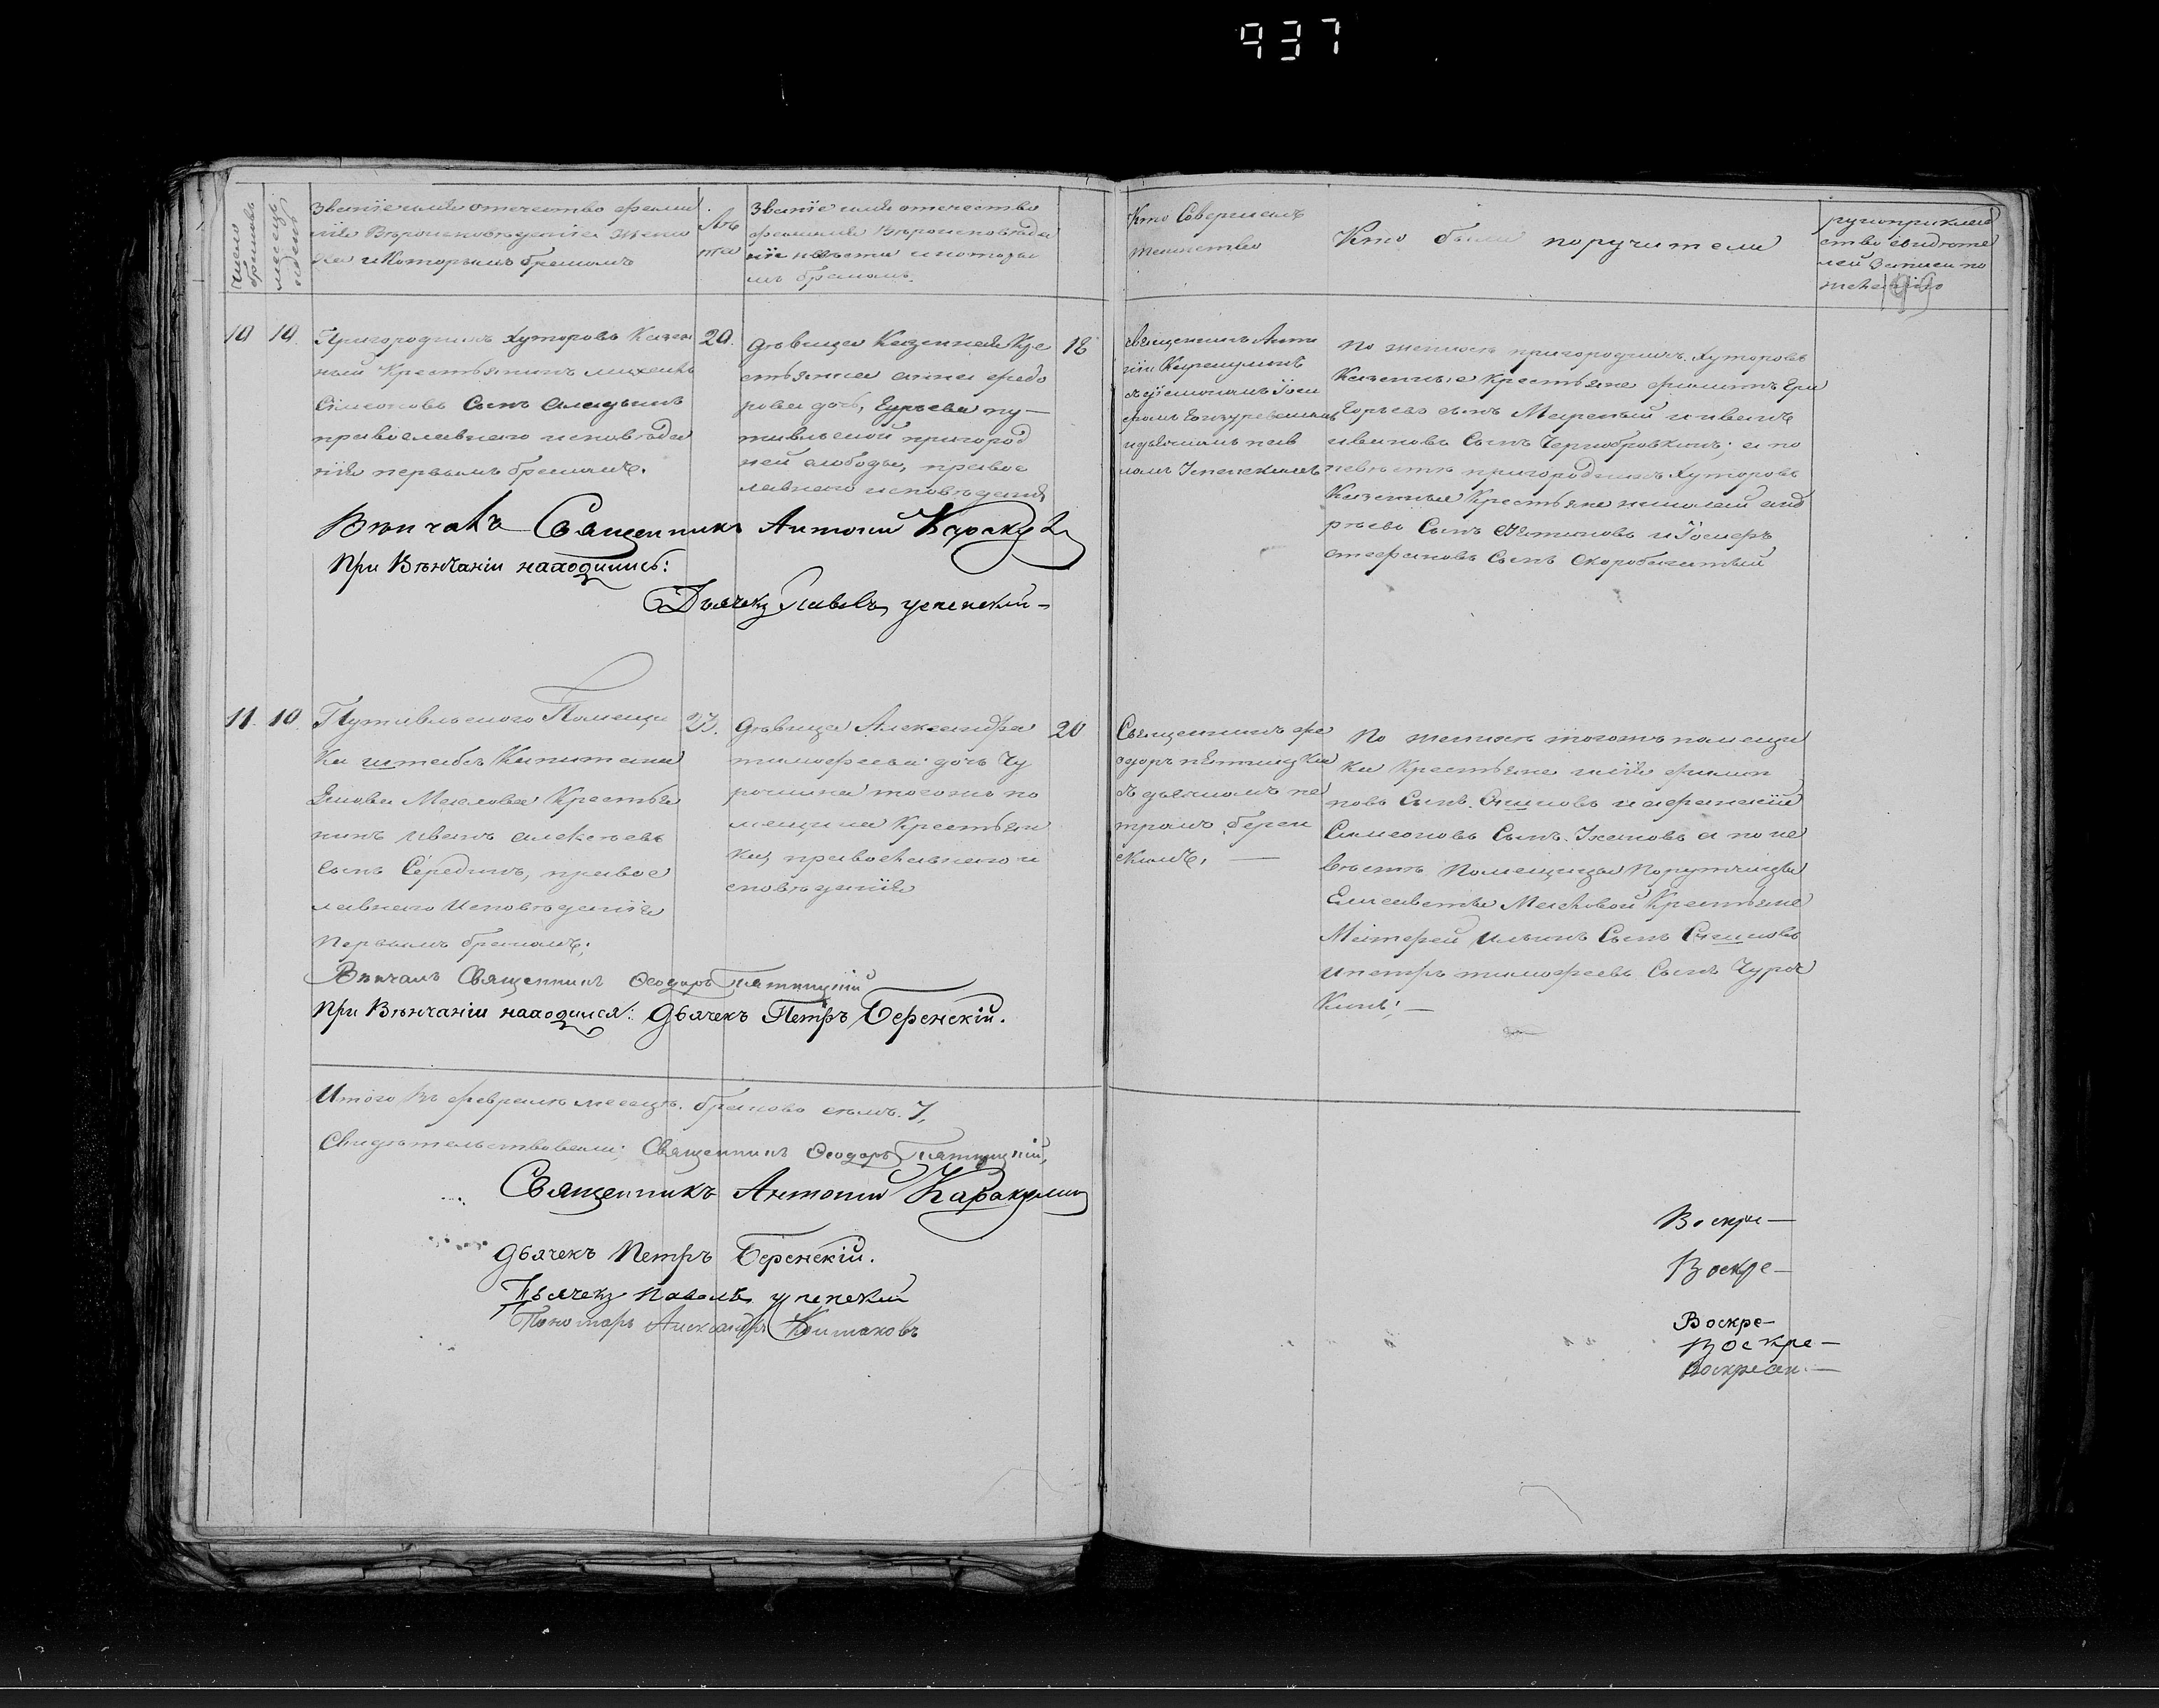 937
Число браковъ
месецъ и день
Званіе имя отечество фамилія
Вѣроисповѣданіе жениха
и Которымъ бракомъ
Лѣта
Званіе имя отечество
фамилия Вѣроисповѣда
ніе невѣсты и которы
мъ бракомъ.
Кто Совершалъ
таинство
Кто были поручители
рукоприклад
ство свидѣте
лей записи по
желанію
10 10. Пригороднихъ хуторовъ Казен
ный Крестьянинъ михаилъ
Симеоновъ Сынъ
православнаго исповѣда
нія первымъ бракомъ.
20.
дѣвица Казенная Кре
стьянка анна федо
рова дочь, Гурьева пу—
тивльской пригород
ней слободы, правос
лавнаго исповѣданія
18
священникъ Анто
ній Каракулинъ
съ діакономъ Іоси
фомъ
и дьячкомъ пав
ломъ Успенскимъ
По женихѣ пригороднихъ хуторовъ
Казенные крестьяне филиппъ
Егорьевъ сынъ и иванъ
ивановъ Сынъ Чернобровкинъ; а по
невѣстѣ пригороднихъ хуторовъ
Казенные Крестьяне николай анд
рѣевъ Сынъ и Іосифъ
стефановъ Сынъ Скоробагатый
Вѣнчалъ Священникъ Антоній Каракул
При Вѣнчаніи находились:
Дьячекъ Павелъ успенскій—
11. 10 Путивльского Помещи
ка штабсъ Капитана
Якова Маклова Крестья
нинъ иванъ алексѣевъ
сынъ Серединъ, правос
лавнаго Исповѣданія
Первымъ бракомъ;
23.
дѣвица Александра
тимофеева дочь Чу
рочкина тогожъ по
мещика Крестьян
ка, православнаго и
сповѣданія
20
Священникъ фе
одоръ пятницкій
съ дьячкомъ пе
тромъ берен
скимъ, —
По женихѣ тогожъ помещи
ка Крестьяне илія филип
повъ Сынъ и афанасій
Симеоновъ Сынъ а по не
вѣстѣ Помещицы Порутчицы
Елисаветы Макловой Крестьяне
Матфей Ильинъ Сынъ
и петръ тимофеевъ Сынъ Чуроч
Кинъ; —
Вѣнчалъ Священникъ Ѳеодоръ Пятницкій
При Вѣнчаніи находился: Дьячекъ Петръ Беренскій.
Итого Въ февралѣ месецѣ браковъ семь. 7,
Свидѣтельствовали; Священникъ Ѳеодоръ Пятницкій,
Священникъ Антоній Каракулин
Дьячекъ Петръ Беренскій.
Дьячекъ Павелъ успенскій
Пономарь Александръ
Воскре—
Воскре—
Воскре—
Воскре—
Воскресен. —